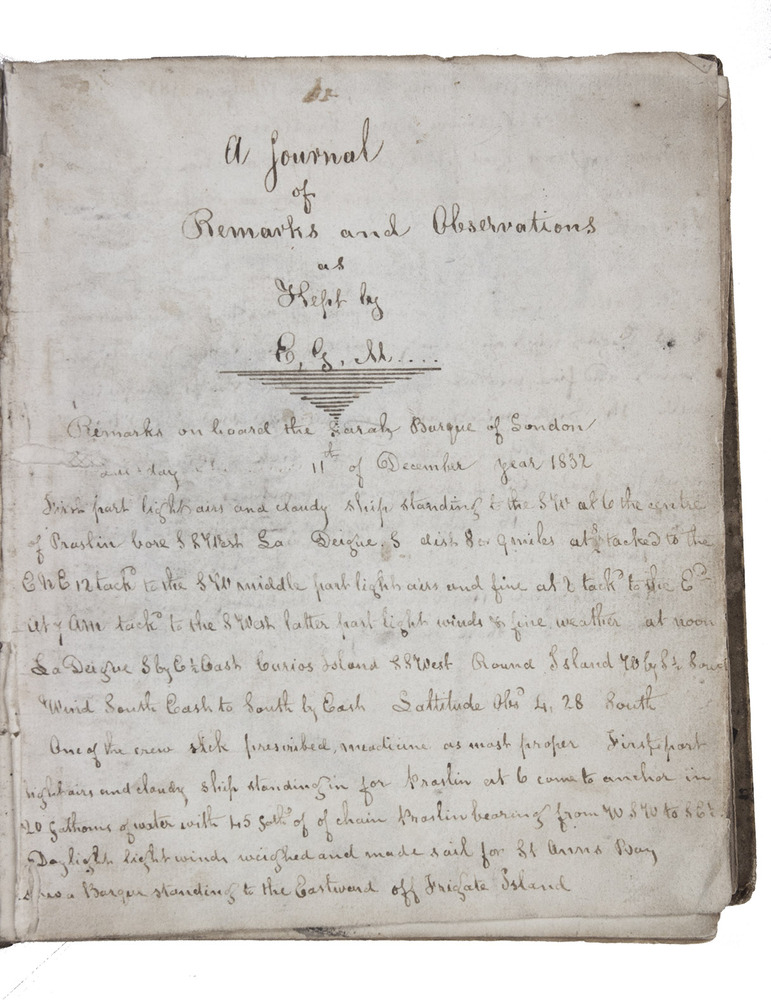 A Journal
of
Remarks and Observations
as
Kept by
E. G. M....
Remarks on board the Sarah Barque of London
11th of December year 1832
First part light airs and cloudy ship standing to the SW at 6 the centre
of Praslin bore SSWest La Deigue S dist 8 or 9 miles at 8 tacked to the
ENE 12 tackd to the SW middle part light airs and fine at 2 tackd to the Ed
at 7 Am tackd to the SWest latter part light winds & fine weather at noon
La Deigue S by E½East Curios Island SSWest Round Island W by S½ South
Wind South East to South by East Lattitude Obsd 4, 28 South
One of the crew sick prescribed meadicine as most proper First part
light airs and cloudy ship standing in for Praslin at 6 came to anchor in
20 fathoms of water with 45 fathm of of chain Praslin bearing from WSW to SE½
Daylight light winds weighed and made sail for St Anns Bay
a Barque standing to the Eastward off Frigate Island